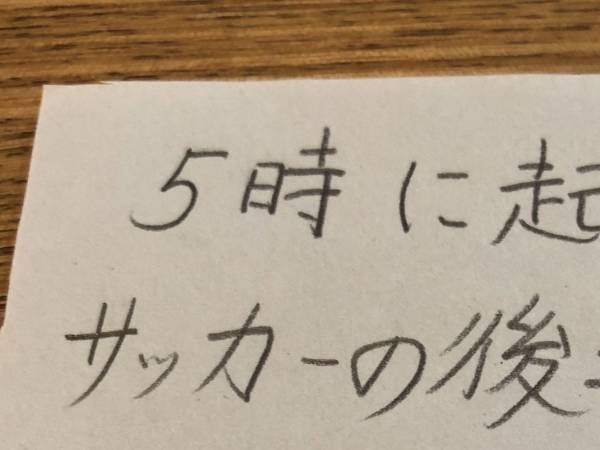 5時に起
サッカーの後